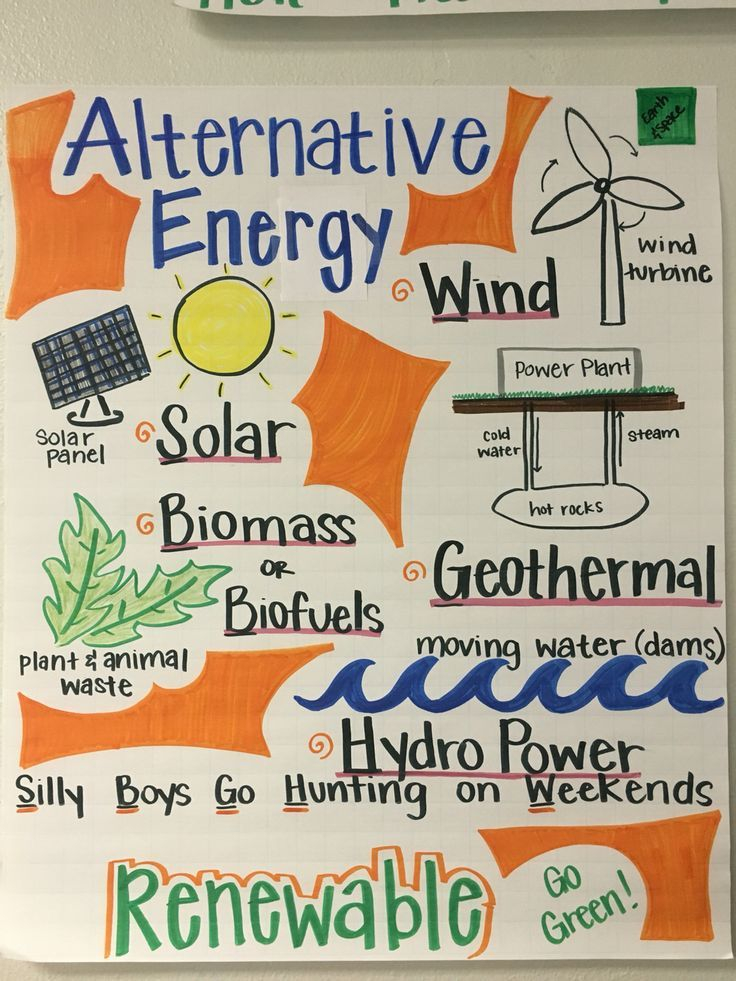 Alternative
Energy
Earth
& Space
wind
turbine
Wind
Solar
panel
Solar
Power Plant
cold
water
steam
hot rocks
Geothermal
Biomass
or
Biofuels
plant & animal
waste
moving water (dams)
Hydro Power
Silly Boys Go Hunting on Weekends
Renewable
Go
Green!